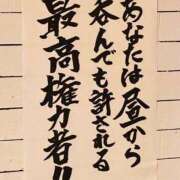 あなたは昼から
呑んでも許される
最高権力者!!